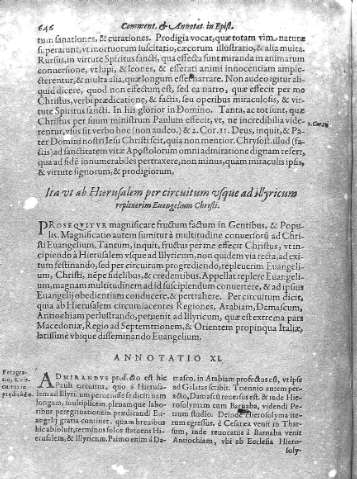 646 Comment. & Annotat. in Epist.
tum sanationes, & curationes. Prodigia vocat, quæ totam vim naturæ
superant, vt mortuorum suscitatio, cæcorum illustratio, & alia multa.
Rursus, in virtute Spiritus sancti, qua effecta sunt miranda in animarum
conuersione, vt lupi, & leones, & efferati animi innocentiam ample-
cterentur, & multa alia, quæ longum esset narrare. Non audeo igitur ali-
quid dicere, quod non effectum est, sed ea narro, quæ effecit per me
Christus, verbi prædicatione, & factis, seu operibus miraculosis, & vir-
tute Spiritus sancti. In his glorior in Domino. Tanta, ac tot sunt, quæ
Christus per suum ministrum Paulum effecit, vt, ne incredibilia vide-
rentur, visus sit verbo hoc (non audeo) & 2. Cor. 11. Deus, inquit, & Pa-
ter Domini nostri Iesu Christi scit, quia non mentior. Chrysost. illud (fa-
ctis) ad sanctitatem vitæ Apostolorum omni admiratione dignam refert,
qua ad fidem innumerabiles pertraxere, non minus, quam miraculis ipsis,
& virtute signorum, & prodigiorum.
Ita vt ab Hierusalem per circuitum vsque ad illyricum
repleuerim Euangelium Christi.
PROSEQVITVR magnificare fructum factum in Gentibus, & Popu-
lis. Magnificatio autem sumitur à multitudine conuersorum ad Chri-
sti Euangelium. Tantum, inquit, fructus per me effecit Christus, vt in-
cipiendo à Hierusalem vsque ad Illyricum, non quidem via recta, ad exi-
tum festinando, sed per circuitum progrediendo, repleuerim Euangeli-
um, Christi, nempe fidelibus, & credentibus. Appellat replere Euangeli-
um, magnam multitudinem ad id suscipiendum conuertere, & ad ipsius
Euangelij obedientiam conducere, & pertrahere. Per circuitum dicit,
quia ab Hierusalem circumiacentes Regiones, Arabiam, Damascum,
Antiochiam perlustrando, peruenit ad Illyricum, quæ est extrema pars
Macedoniæ, Regio ad Septemtrionem, & Orientem propinqua Italiæ,
latissime vbique disseminando Euangelium.
ANNOTATIO XI.
ADMIRANDVS profecto est hic
Pauli circuitus, quo à Hierusa-
lem ad Illyricum peruenisse se dicit: nam
longam, multiplicem, plenamque labo-
ribus peregrinationem prædicandi Eu-
angelij gratia continet. quam breuibus
hic absoluit, terminos solos statuens Hi-
erusalem, & Illyricum. Primo enim à Da-
masco, in Arabiam profectus est, vt ipse
ad Galatas scribit. Triennio autem per-
acto, Damascum reuersus est. & inde Hie-
rosolymam cum Barnaba, videndi Pe-
trum studio. Deinde Hierosolyma ite-
rum egressus, è Cæsarea venit in Thar-
sum, inde reuocatus à Barnaba venit
Antiochiam, vbi ab Ecclesia Hieroso-
soly-
2. Cor. 11